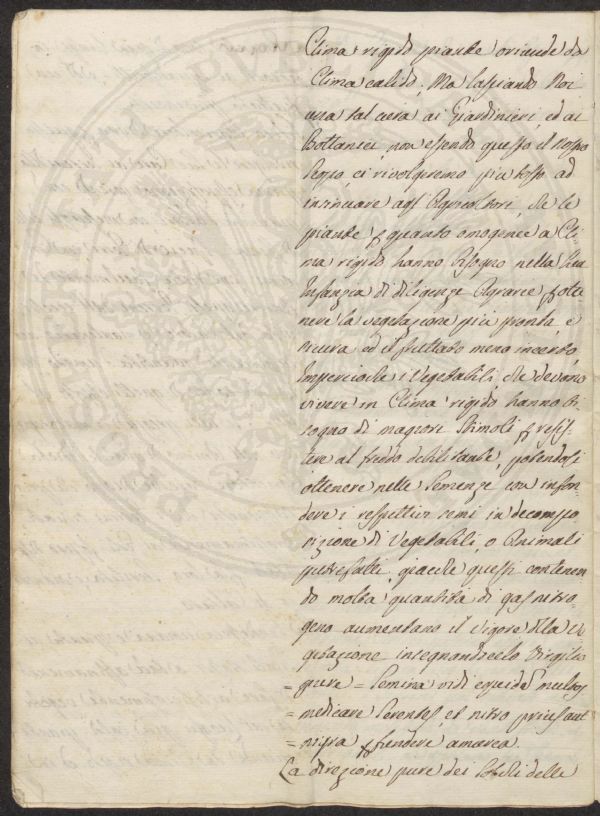 Clima rigido piante oriunde da
Clima calido. Ma lasciando Noi
una tal cura ai Giardinieri, ed ai
Bottanici, non essendo questo il nostro
scopo, ci rivolgeremo piu tosto ad
insinuare agl'Agricoltori, che le
piante p quanto omogenee a Cli
ma rigido hanno bisogno nella sua
Infanzia di diligenze Agrarie p otte
nere la vegetazione più pronta, e
sicura ed il fruttato meno incerto
Imperciocche i Vegetabili, che devono
vivere in Clima rigido hanno bi
sogno di magiori stimoli p resis
tere al freddo debilitante, potendosi
ottenere nelle Semenze con infon
dere i respettivi semi in decompo
sizione di Vegetabili, o Animali
putrefatti, giacche questi contenen
do molta quantità di gas nitro
geno aumentano il vigore della ve
getazione insegnandocelo Virgilio
pure = Semina vidi equidem multos
= medicare serentes, et nitro prius aut
= nigra pfundere amurca.
La direzione pure dei delle